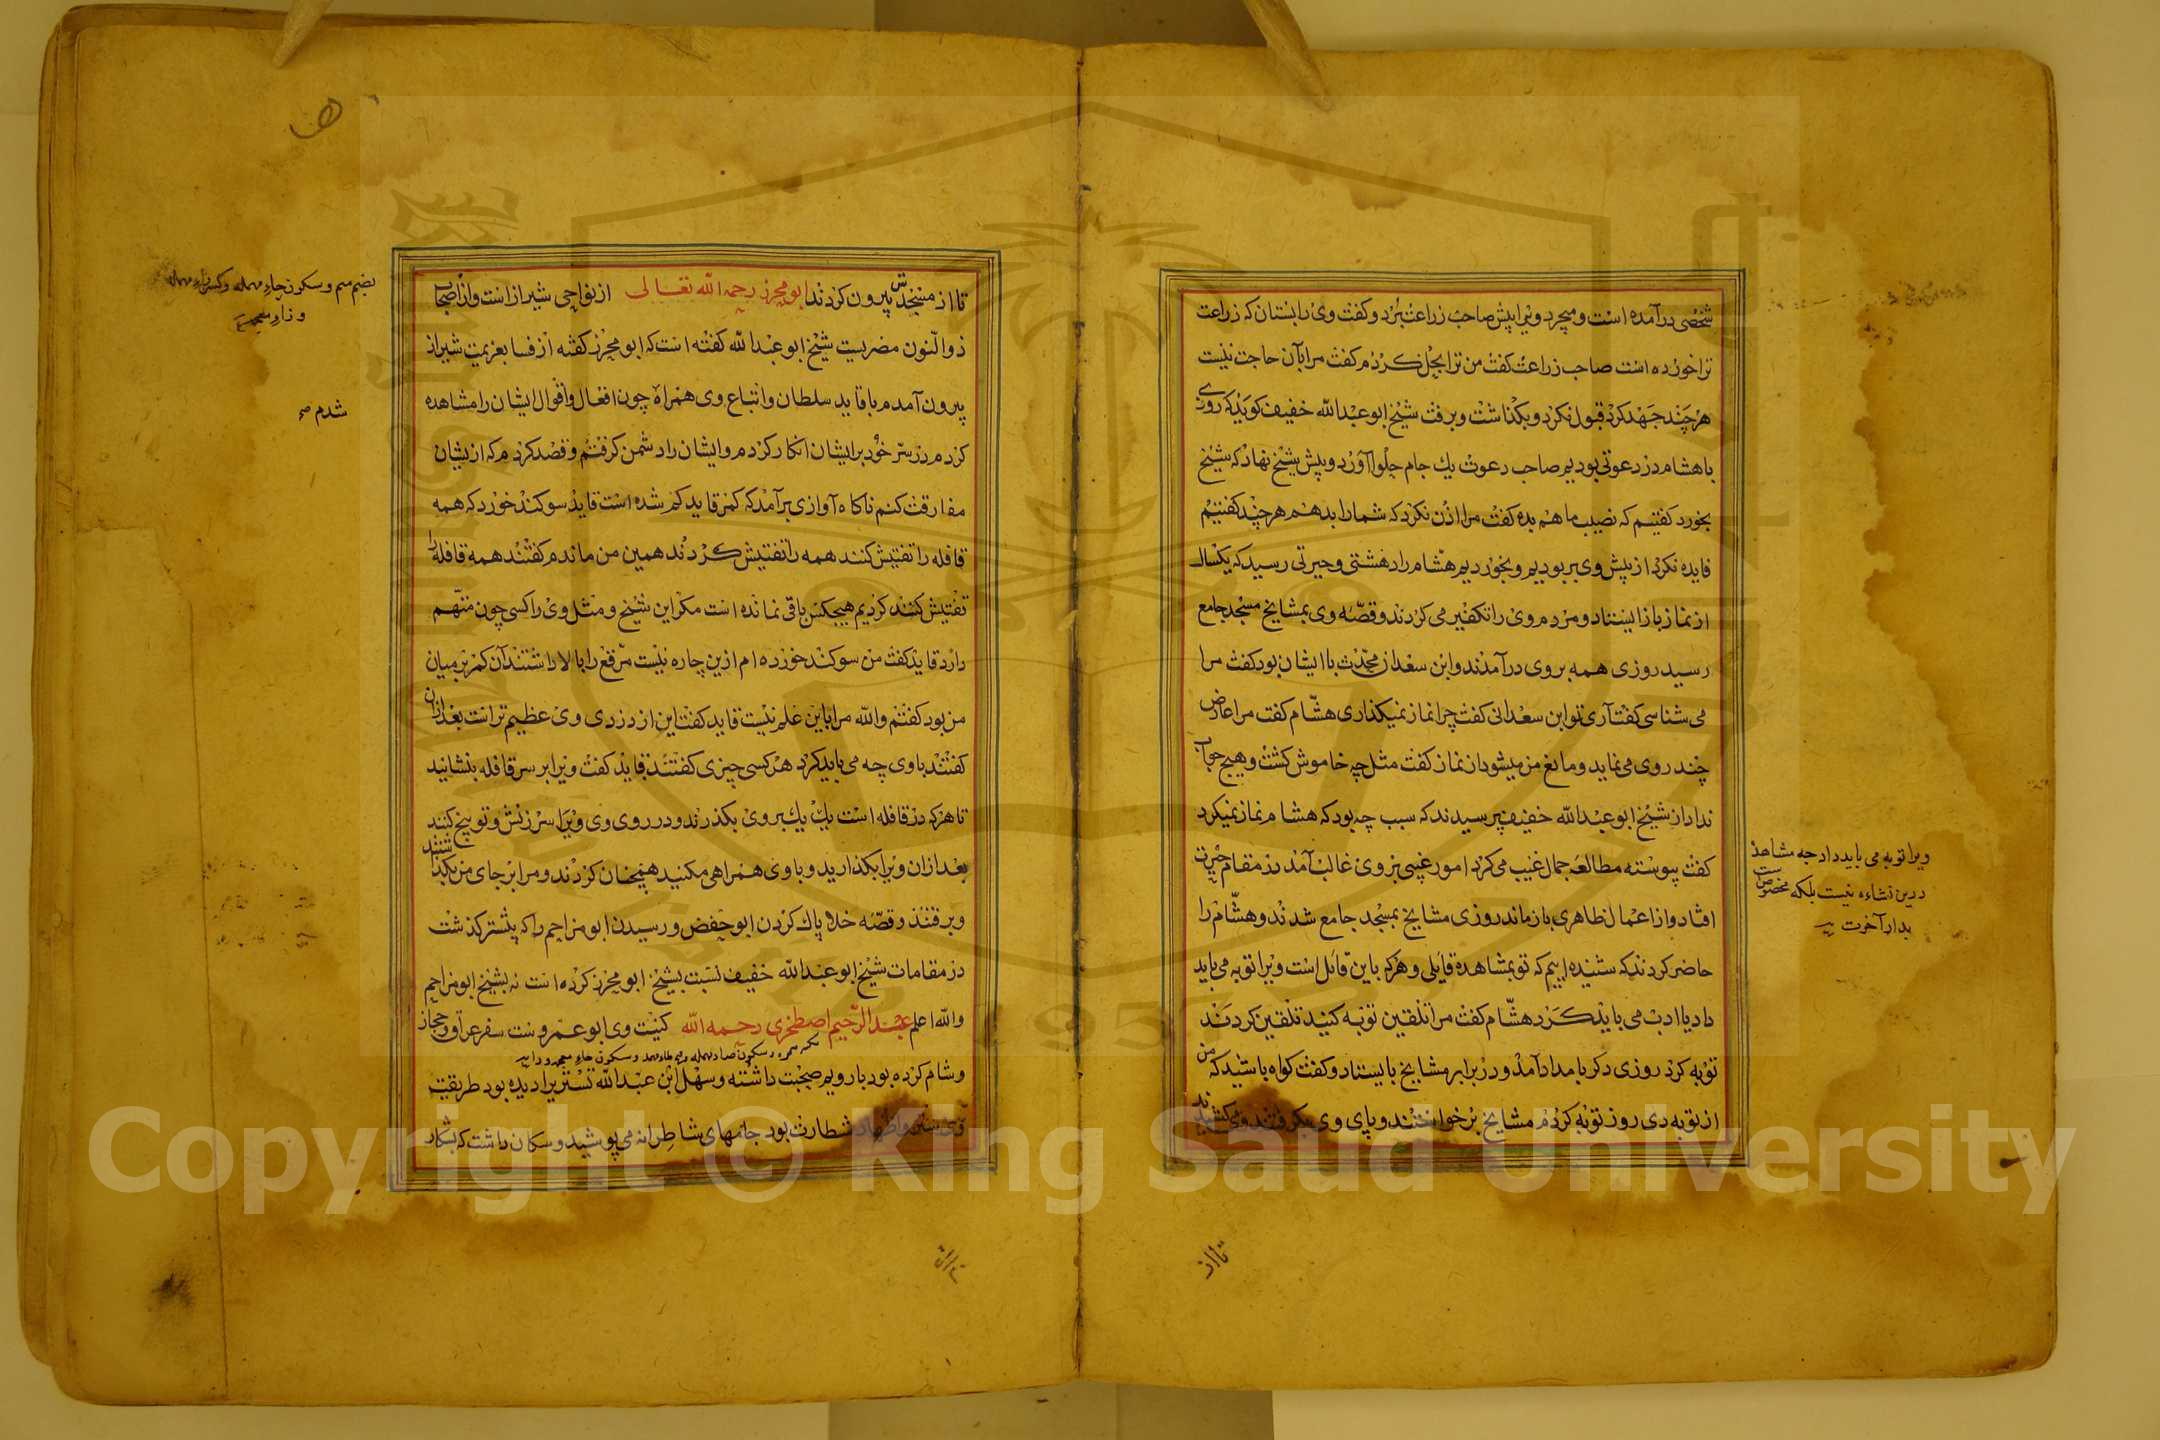 شخصی در آمده است و میچرد ویرا پیش صاحب زراعت برد و کفت وی را بستان که زراعت
ترا خورده است صاحب زراعت کفت من ترا بحل کردم کفت مرا بآن حاجت نیست
هر چند جهد کرد قبول نکرد و بکذاشت و برفت شیخ ابو عبد الله خفیف کوید که روزی
با هشام در دعوتی بودیم صاحب دعوت یك جام حلوا آورد و پیش شیخ نهاد که شیخ
بخورد کفتیم که نصیب ما هم بده کفت مرا اذن نکرد که شما را بدهم هر چند کفتیم
فایده نکرد از پیش وی بربودیم و بخوردیم هشام را دهشتی و حیرتی رسید که یکسال
از نماز باز ایستاد و مردم وی را تکفیر می کردند و قصه وی بمشایخ مسجد جامع
رسید روزی همه بروی در آمدند و ابن سعدان محدث با ایشان بود کفت مرا
می شناسی کفت آری تو ابن سعدانی کفت چرا نماز نمیکذاری هشام کفت مرا عارض
چند روی می نماید و مانع من میشود از نماز کفت مثل چه خاموش کشت و هیچ جواب
نداد از شیخ ابو عبد الله خفیف پرسیدند که سبب چه بود که هشام نماز نمیکرد
کفت پیوسته مطالعه جمال غیب می کرد امور غیبی بر وی غالب آمد در مقام حیرت
افتاد و از اعمال ظاهری باز ماند روزی مشایخ بمسجد جامع شدند و هشام را
حاضر کردند که شنیده ایم که تو بمشاهده قایلی و هر که باین قائل است ویرا توبه می باید
داد یا ادب می باید کرد هشام کفت مرا تلقین توبه کنید تلقین کردند
توبه کرد روزی دکر بامداد آمد و در برابر مشایخ بایستاد و کفت کواه باشید که من
از توبه دی روز توبه کردم مشایخ بر خواستند و پای وی بکرفتند و می کشیدند
ویرا توبه می باید داد چه مشاهد
درین نشاءه نیست بلکه مخصوصست
بدار آخرت
تا از
تا از مسجدش بیرون کردند ابو محرز رحمه الله تعالی از نواحی شیراز است و از اصحاب
ذو النون مصریست شیخ ابو عبد الله کفته است که ابو محرز کفته از فسا بعزیمت شیراز
بیرون آمدم با قاید سلطان و اتباع وی همراه چون افعال و اقوال ایشان را مشاهده
کردم در سر خود بر ایشان انکار کردم و ایشان را دشمن کرفتم و قصد کردم که از یشان
مفارقت کنم ناکاه آوازی برآمد که کمر قاید کم شده است قاید سوکند خورد که همه
قافله را تفتیش کنند همه را تفتیش کردند همین من ماندم کفتند همه قافله را
تفتیش کردیم هیچکس باقی نمانده است مکر این شیخ و مثل وی را کسی چون متهم
دارد قاید کفت من سوکند خورده ام ازین چاره نیست مرقع را بالا داشتند آن کمر بر میان
من بود کفتم والله مرا باین علم نیست قاید کفت این از دزدی وی عظیم تر است بعد ازان
کفتند باوی چه می باید کرد هر کسی چیزی کفتند قاید کفت ویرا بر سر قافله بنشانید
تا هر که در قافله است یك یك بروی بکذرند و در روی وی ویرا سرزنش و توبیخ کنند
بعد ازان ویرا بکذارید و با وی همراهی مکنید همچنان کردند و مرا بر جای من بکذاشتند
و برفتند و قصه خلا پاك کردن ابو حفص و رسیدن ابو مزاحم را که پیشتر کذشت
در مقامات شیخ ابو عبد الله خفیف نسبت بشیخ ابو محرز کرده است نه بشیخ ابو مزاحم
والله اعلم عبد الرحیم اصطخری رحمه الله کنیت وی ابو عمرو ست سفر عراق و حجاز
و شام کرده بود با رویم صحبت داشته و سهل ابن عبد الله تستریرا دیده بود طریقت
وی ستر و اظهار شطارت بود جامهای شاطرانه می پوشید و سکان داشت که بشکار
بضم میم و سکون حاء مهمله و کسر راء مهمله
و زاء معجمه
شدم صح
Copyright © King Saud University